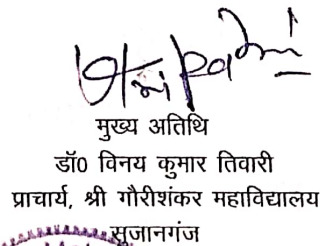 मुख्य अतिथि
डॉ0 विनय कुमार तिवारी
प्राचार्य, श्री गौरीशंकर महाविद्यालय
सुजानगंज